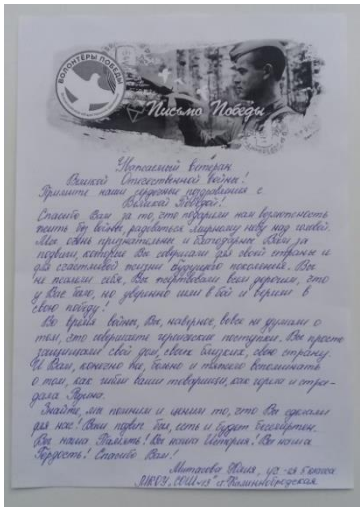 ВОЛОНТЁРЫ ПОБЕДЫ
Письмо Победы
Уважаемый ветеран
Великой Отечественной войны!
Примите наши сердечные поздравления с
Великой Победой!
Спасибо Вам за то, что подарили нам возможность
жить без войны, радоваться мирному небу над головой.
Мы очень признательны и благодарны Вам за
подвиги, которые Вы совершали для своей страны и
для счастливой жизни будущего поколения. Вы
не жалели себя, Вы жертвовали всем дорогим, что
у Вас было, но уверенно шли в бой и верили в
свою победу!
Во время войны, Вы, наверное, вовсе не думали о
том, что совершаете героические поступки. Вы просто
защищали свой дом, своих близких, свою страну.
И Вам, конечно же, больно и тяжело вспоминать
о том, как гибли ваши товарищи, как горела и стра-
дала Родина.
Знайте, мы помним и ценим то, что Вы сделали
для нас! Ваш подвиг был, есть и будет бессмертен.
Вы наша Память! Вы наша История! Вы наша
Гордость! Спасибо Вам!
Юлия, уч-ся 5 класса
МКОУ "СОШ